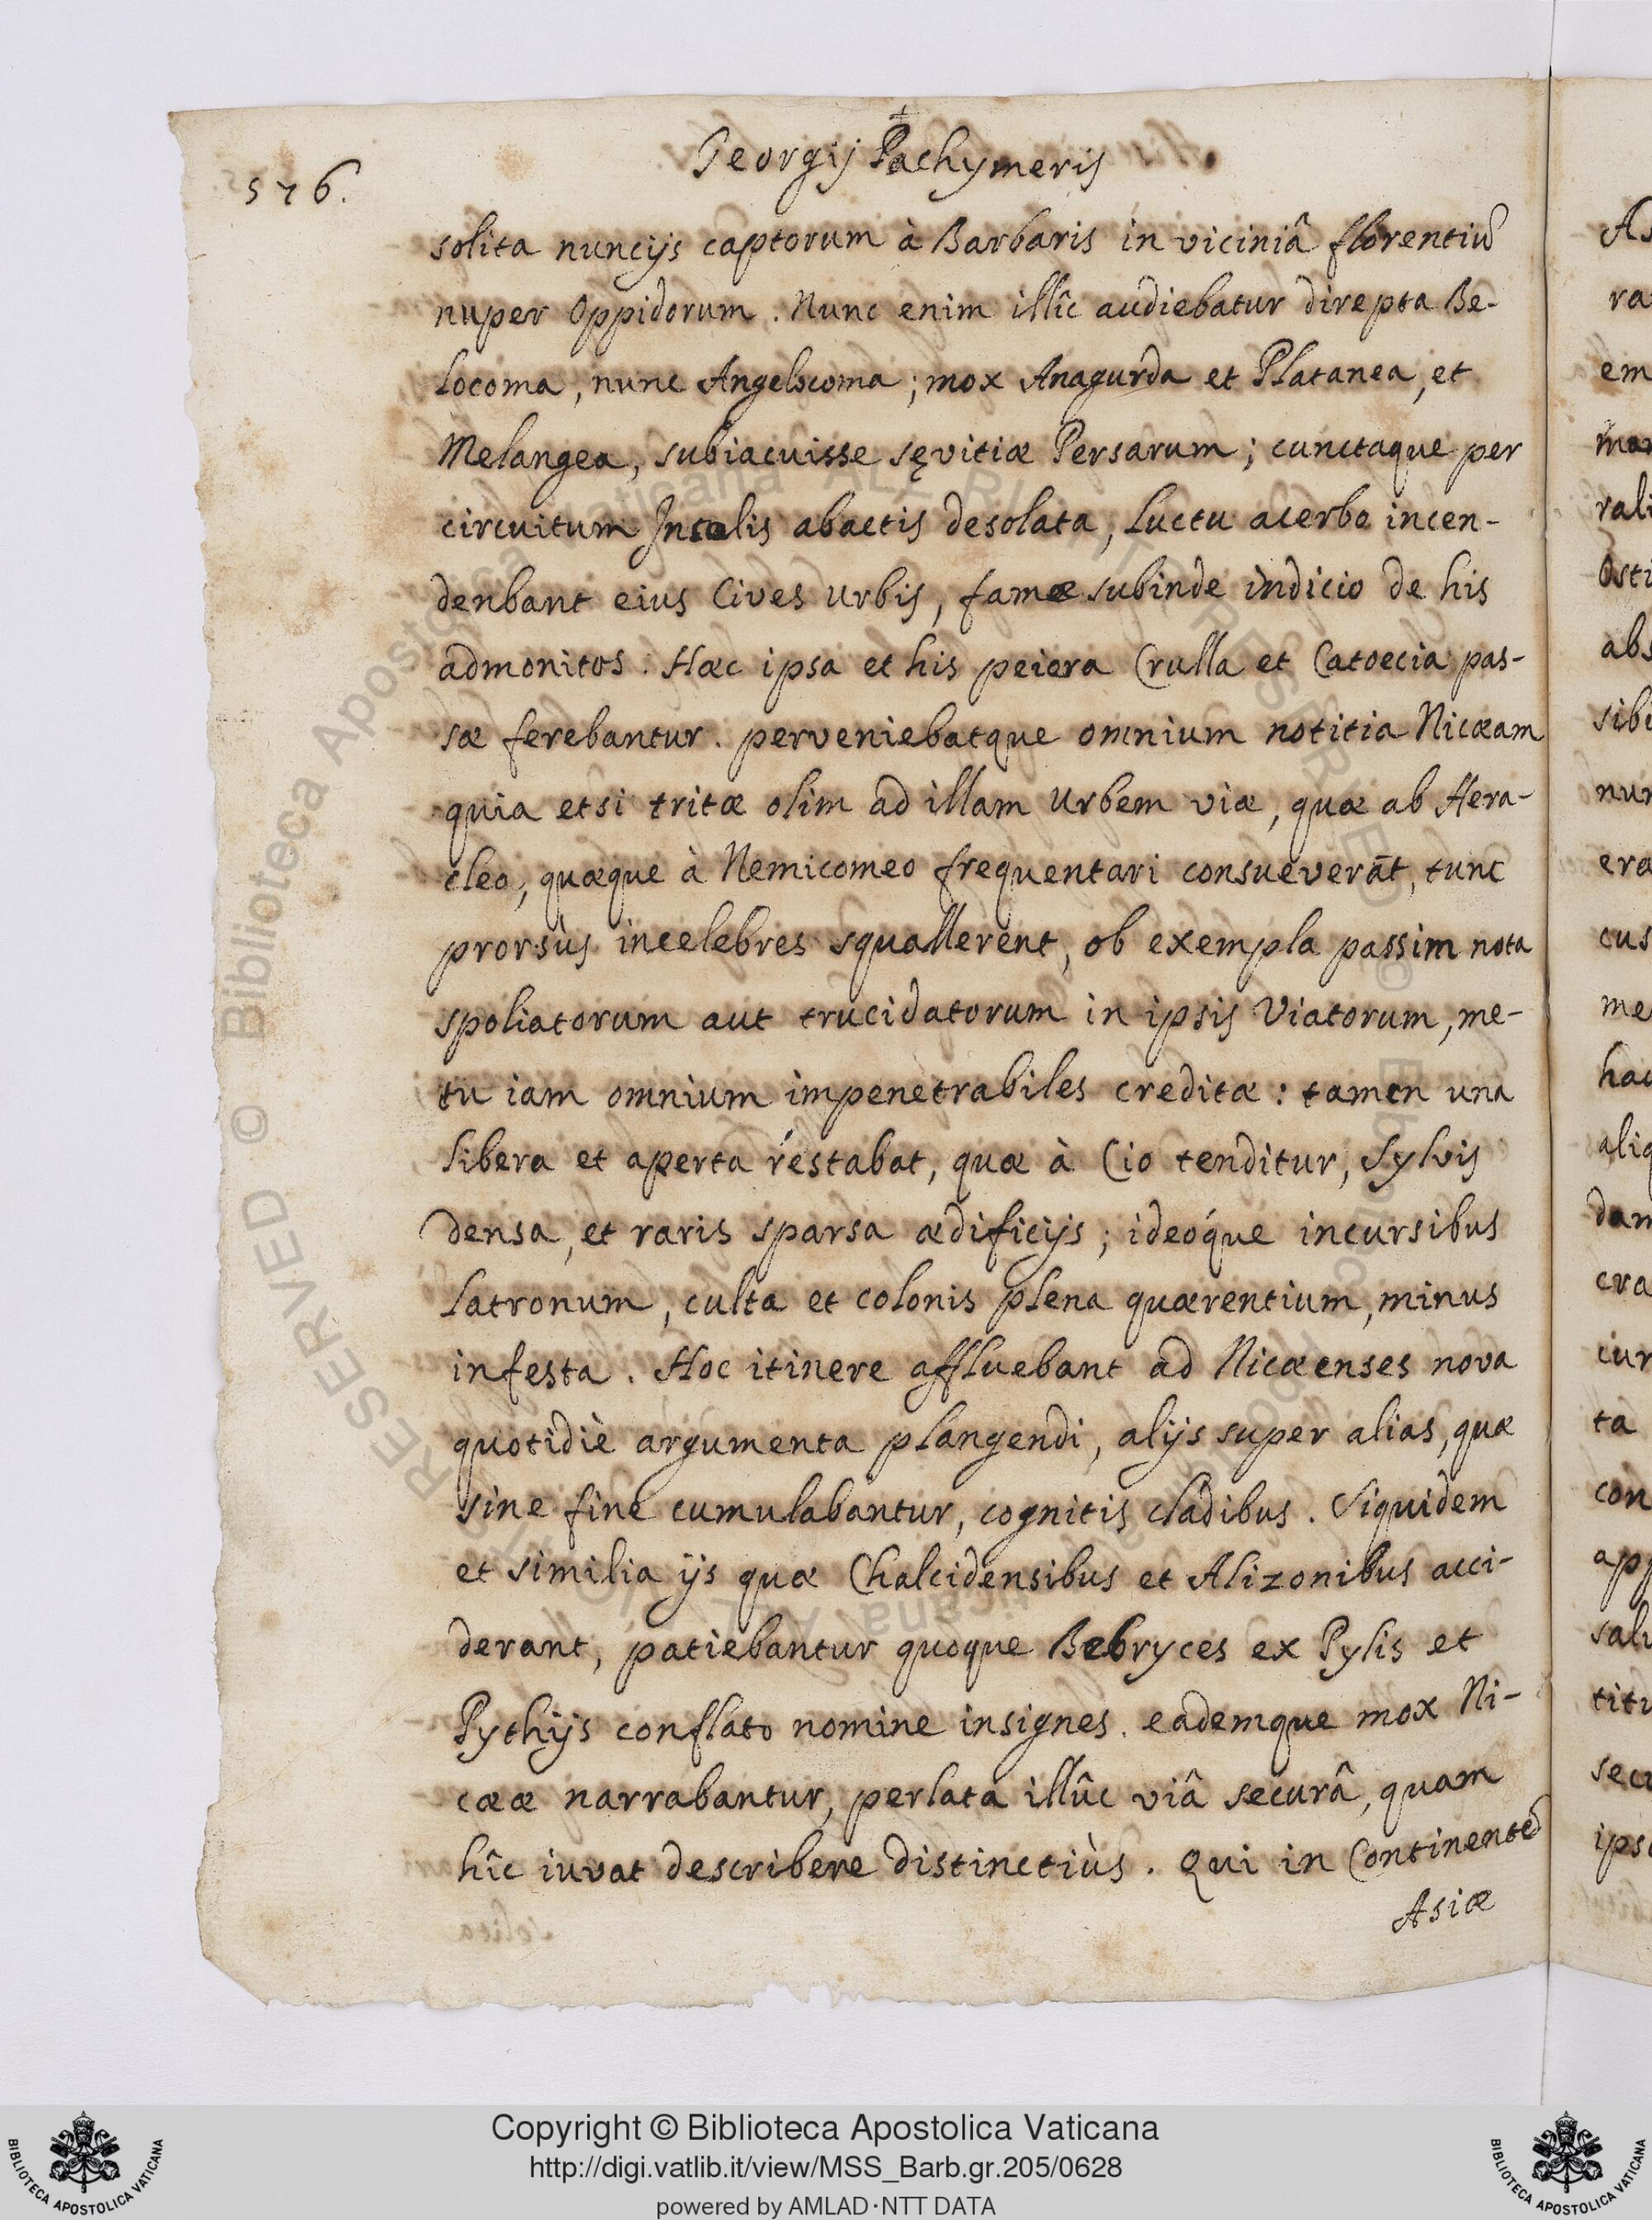 Georgij Pachymeris
576.
solita nuncijs captorum à Barbaris in viciniâ florentiũ
nuper Oppidorum. Nunc enim illîc audiebatur direpta Be-
locoma, nunc Angelocoma; mox Anagurda et Platanea, et
Melangea, subiacuisse sęvitiæ Persarum; cunctaque per
circuitum Incolis abactis desolata, luctu acerbo incen-
denbant eius Cives Urbis, famæ subinde indicio de his
admonitos. Hæc ipsa et his peiora Crulla et Catoecia pas-
sæ ferebantur. perveniebatque omnium notitia Nicæam
quia etsi tritæ olim ad illam Urbem viæ, quæ ab Hera-
cleo, quæque à Nemicomeo frequentari consueverāt, tunc
prorsùs incelebres squallerent, ob exempla passim nota
spoliatorum aut trucidatorum in ipsis Viatorum, me-
tu iam omnium impenetrabiles creditæ: tamen una
libera et aperta réstabat, quæ à Cio tenditur, Sylvis
densa, et raris sparsa ædificijs; ideóque incursibus
Latronum, culta et colonis plena quærentium, minus
infesta. Hoc itinere affluebant ad Nicæenses nova
quotidiè argumenta plangendi, alijs super alias, quæ
sine fine cumulabantur, cognitis cladibus. Siquidem
et similia ijs quæ Chalcidensibus et Alizonibus acci-
derant, patiebantur quoque Bebryces ex Pylis et
Pythijs conflato nomine insignes. eademque mox Ni-
cææ narrabantur, perlata illûc viâ securâ, quam
hîc iuvat describere distinctiùs. Qui in Continente
Asiæ
As
ra
em
rali
Osti
abs
sibi
nun
era
cus
me
hac
aliq
dam
cra
iur
ta
con
app
salu
titu
secu
ipso
Copyright © Biblioteca Apostolica Vaticana
http://digi.vatlib.it/view/MSS_Barb.gr.205/0628
powered by AMLAD·NTT DATA
BIBLIOTECA APOSTOLICA VATICANA
BIBLIOTECA APOSTOLICA VATICANA